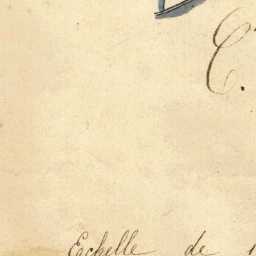 C.
Echelle de